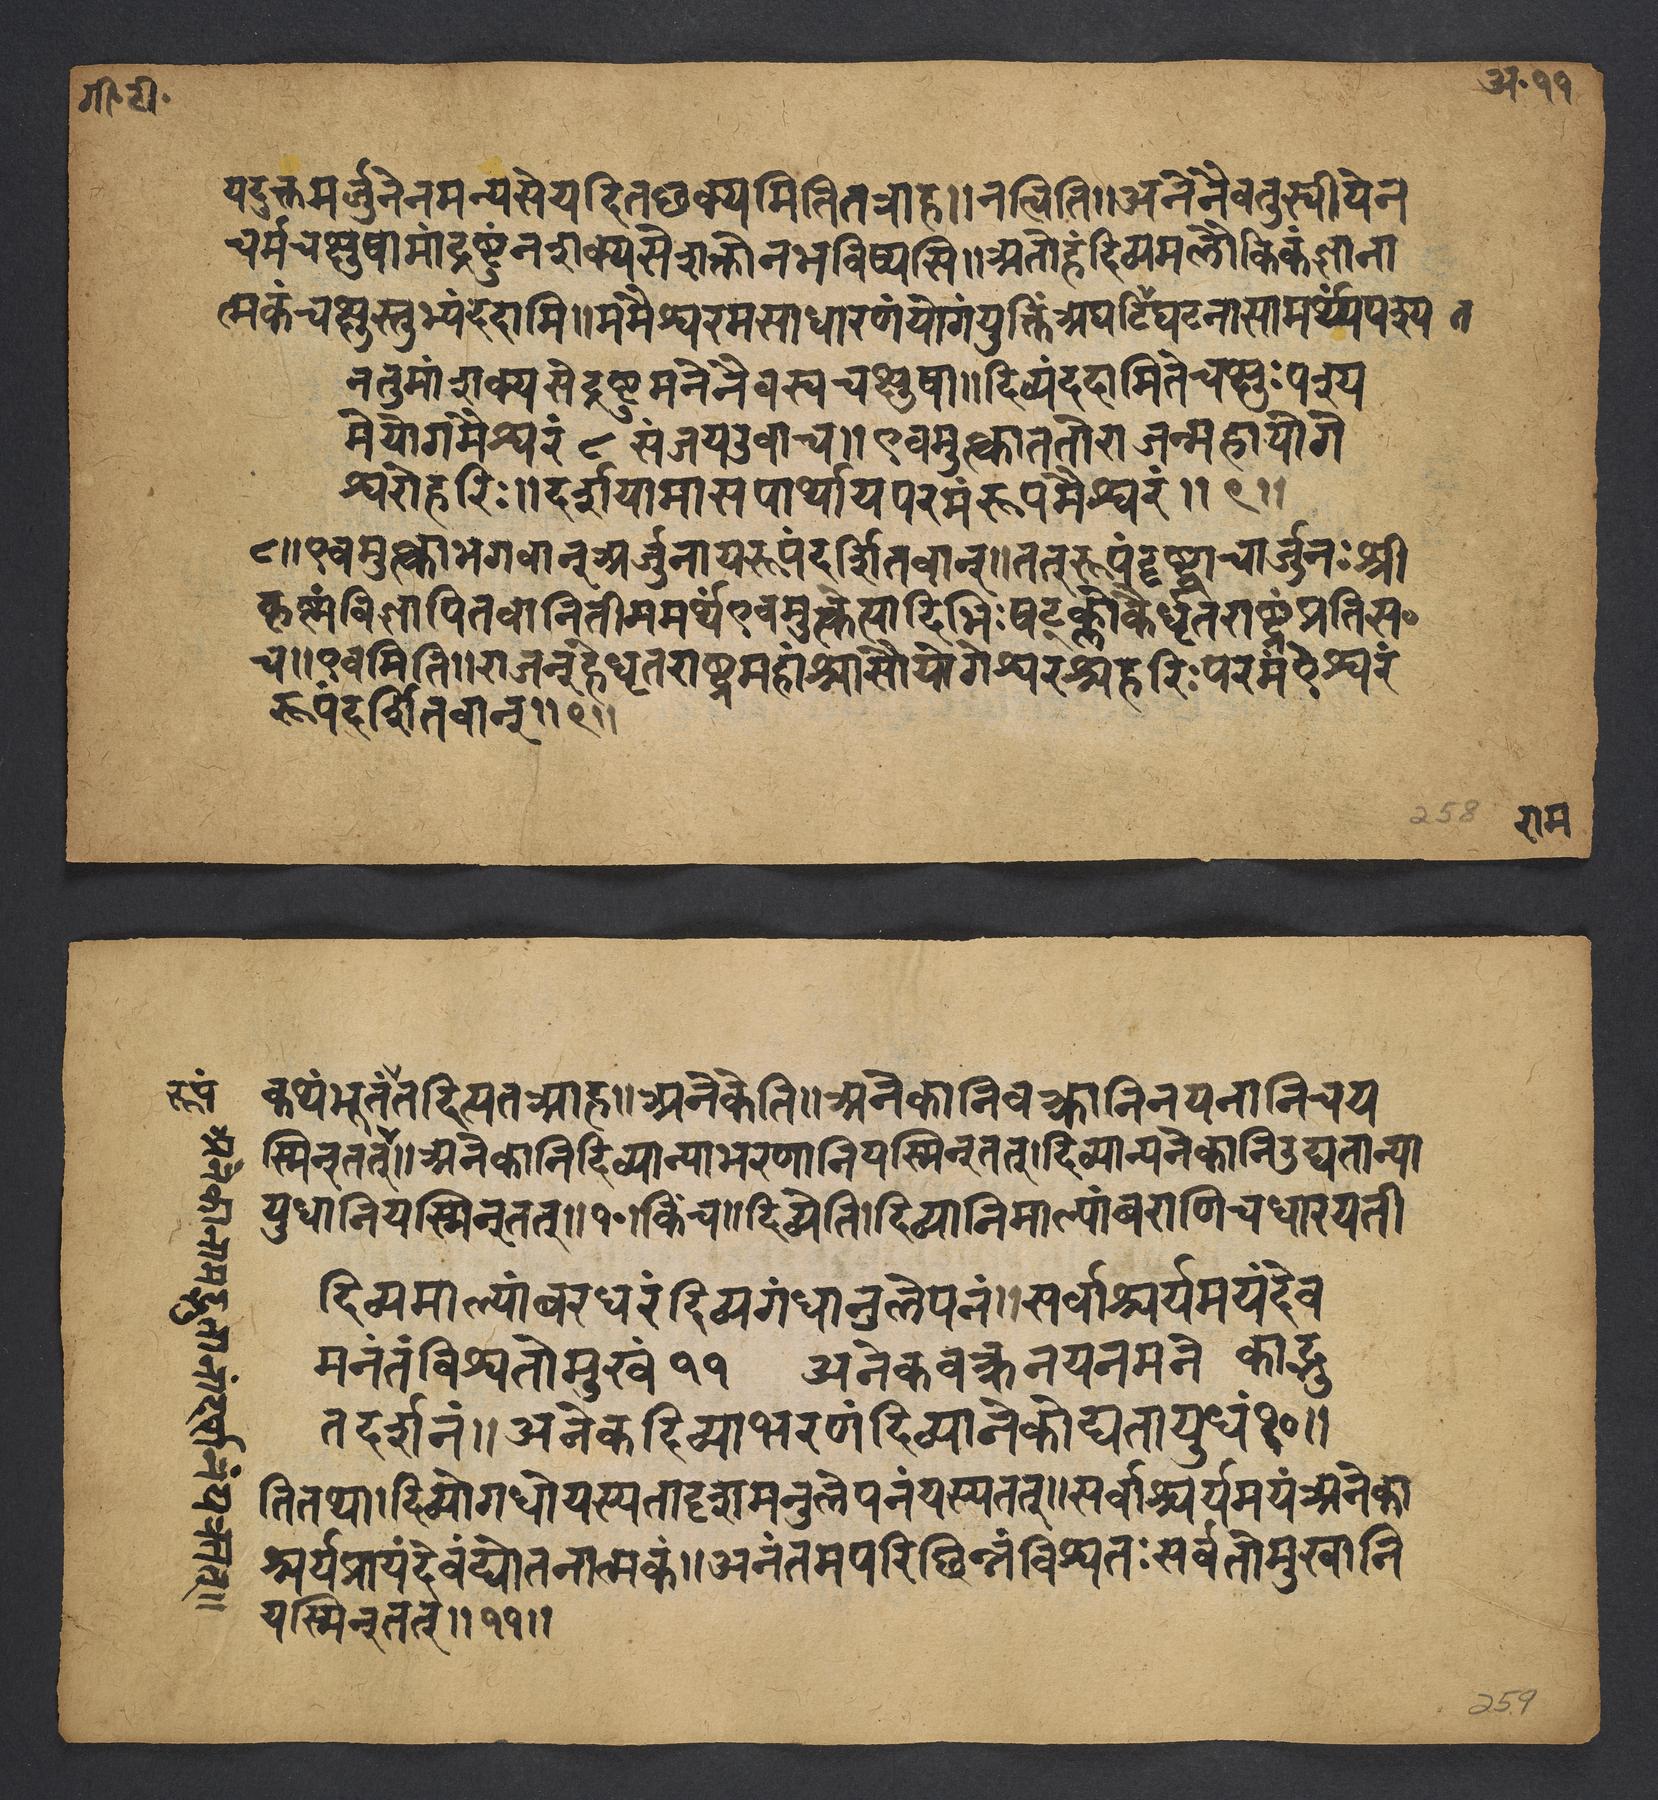 गी.टी.
अ.११
यदुक्तमर्जुनेनमन्यसेयदितछक्यमितितत्राह॥नत्विति॥अनेनैवतुस्वीयेन
चर्मचक्षुषामांद्रष्टुंनशक्यसेशक्तोनभविष्यसि॥अतोहंदिव्यमलौकिकंज्ञाना
त्मकंचक्षुस्तुभ्यंददामि॥ममैश्वरमसाधारणंयोगंयुक्तिंअघटिघटनासामर्थ्यंपश्य त
नतुमांशक्यसेद्रष्टुमनेनैवस्वचक्षुषा॥दिव्यंददामितेचक्षुःपश्य
मेयोगमैश्वरं ८ संजयउवाच॥एवमुत्क्वाततोराजन्महायोगे
श्वरोहरिः॥दर्शयामासपार्थायपरमंरूपमैश्वरं॥९॥
८॥एवमुत्क्वाभगवान्अर्जुनायरूपंदर्शितवान्॥तत्रूपंदृष्ट्वाचार्जुनःश्री
कृष्णंविज्ञापितवानितीममर्थंएवमुत्क्वेत्यादिभिःषट्श्लोकैर्धृतराष्ट्रंप्रतिसं॰
च॥एवमिति॥राजन्हेधृतराष्ट्रमहांश्चासौयोगेश्वरश्चहरिःपरमंऐश्वरं
रूपंदर्शितवान्॥९॥
258
राम
कथंभूतंतदित्यतआह॥अनेकेति॥अनेकानिवक्त्राणिनयनानिचय
स्मिन्तत्॥अनेकानिदिव्यान्याभरणानियस्मिन्तत्।दिव्यान्यनेकानिउद्यतान्या
युधानियस्मिन्तत्॥१०।किंच॥दिव्येति।दिव्यानिमाल्यांबराणिचधारयती
दिव्यमाल्यांबरधरंदिव्यगंधानुलेपनं॥सर्वाश्चर्यमयंदेव
मनंतंविश्वतोमुखं ११ अनेकवक्त्रनयनमने काद्भु
तदर्शनं॥अनेकदिव्याभरणंदिव्यानेकोद्यतायुधं१०॥
तितथा।दिव्योगधोयस्यतादृशमनुलेपनंयस्यतत्॥सर्वाश्चर्यमयंअनेका
श्चर्यप्रायंदेवंद्योतनात्मकं॥अनंतमपरिछिन्नंविश्वतःसर्वतोमुखानि
यस्मिन्तत्॥११॥
रूपं
अनेकानामद्भुतानांदर्शनंयत्रतत्॥
259